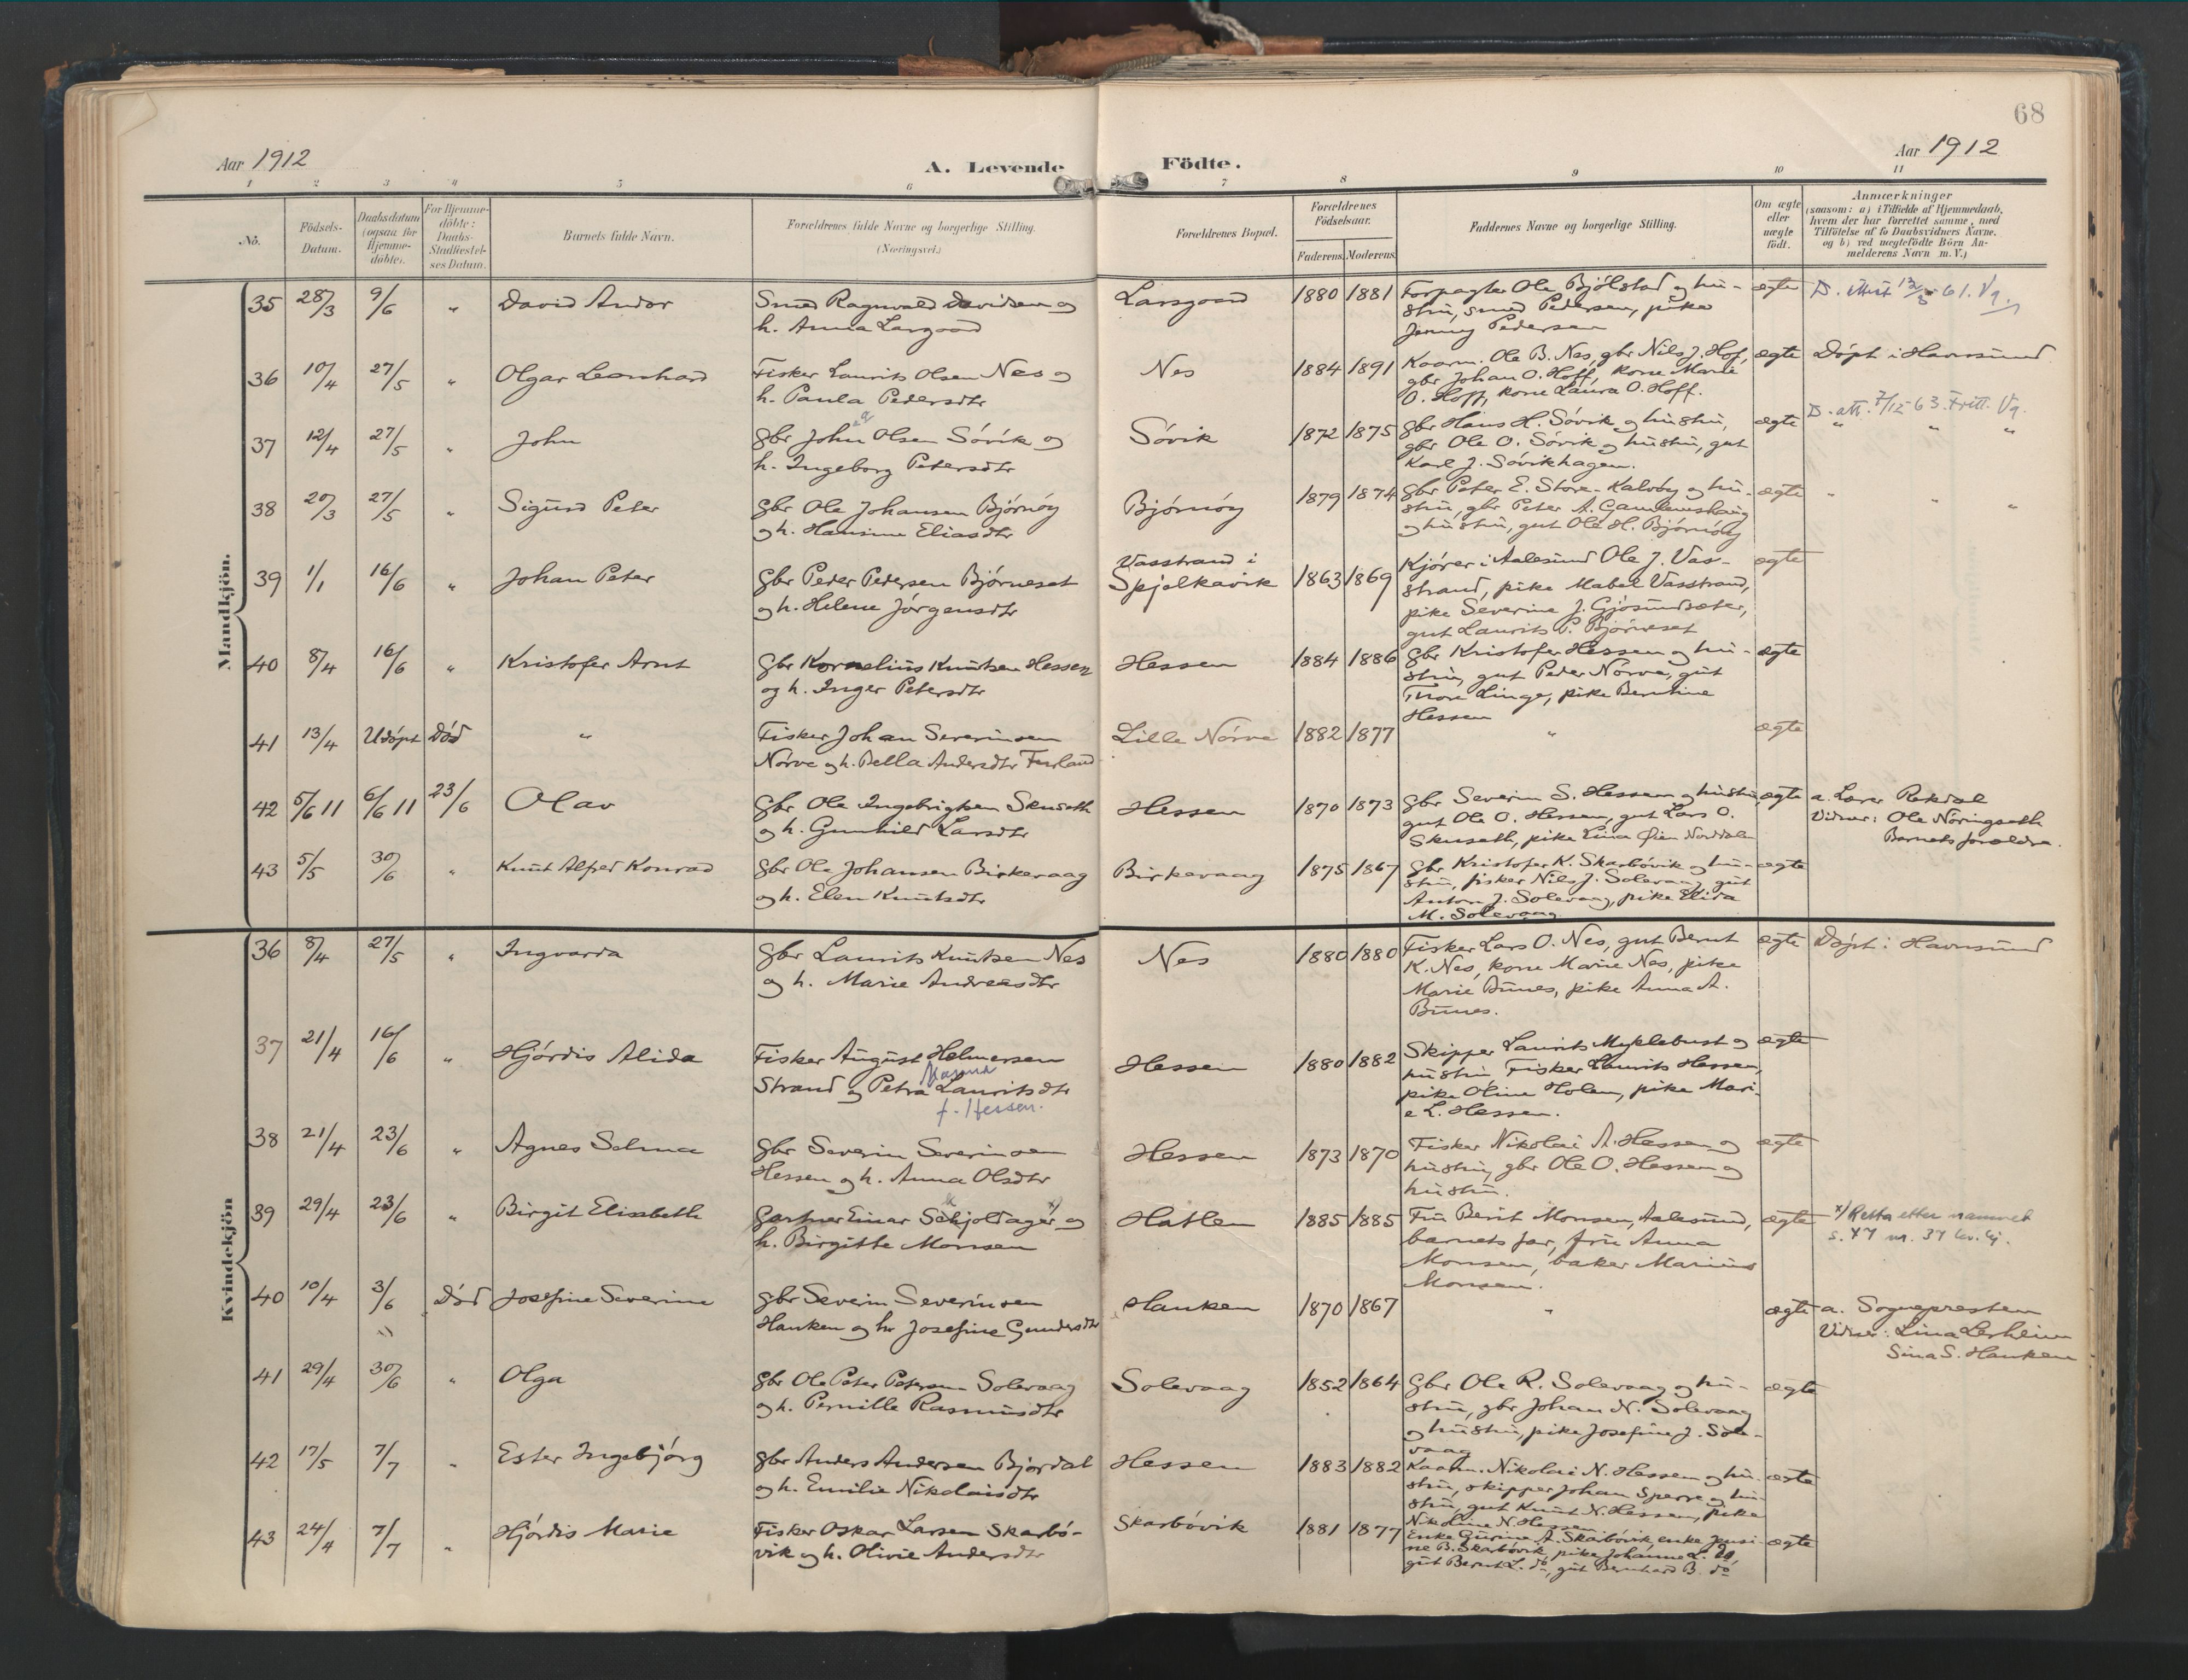 68
Aar 1912
A. Levende Födte.
Aar 1912
1 2 3 4 5 6 7 8 9 10 11
No.
Födsels-
Datum.
Daabsdatum
(ogsaa for
Hjemme-
döbte).
For Hjemme-
döbte:
Daabs-
Stadfæstel-
ses Datum.
Barnets fulde Navn.
Forældrenes fulde Navne og borgerlige Stilling.
(Næringsvei.)
Forældrenes Bopæl.
Forældrenes
Födselsaar.
Faderens. Moderens.
Faddernes Navne og borgerlige Stilling.
Om ægte
eller
uægte
født.
Anmærkninger
(saasom: a) i Tilfælde af Hjemmedaab,
hvem der har forrettet samme, med
Tilföielse af to Daabsvidners Navne.
og b) ved uægtefödte Börn An-
melderens Navn m. V.)
Mandkjön.
35 28/3 9/6 " David Andor
Smed Ragnvald Davidsen og
h. Anna Larsgaard
Larsgaard 1880 1881
Forpagter Ole Bjölstad og hu-
stru, smed Pedersen, pike
Jenny Pedersen
ægte
D. attest 12/3-61. Vg.
36 10/4 27/5 " Olgar Leonhard
Fisker Laurits Olsen Nes og
h. Paula Pedersdtr
Nes 1884 1891
Kaarm. Ole B. Nes, gbr Nils J. Hof,
gbr Johan O. Hoff, kone Marie
O. Hoff, kone Laura O. Hoff.
ægte
Döpt i Havnsund
37 12/4 27/5 " John
gbr John Olsen Sövik og
h. Ingeborg Petersdtr
Sövik 1872 1875
gbr Hans H. Sövik og hustru,
gbr Ole O. Sövik og hustru, gut
Karl J. Sövikhagen.
ægte
D. att. 7/12-63. Fritt. Vg.
" " "
38 20/3 27/5 " Sigurd Peter
gbr Ole Johansen Björnöy
og h. Hansine Eliasdtr
Björnöy 1879 1874
gbr Peter E. Store-Kalvöy og hu-
stru, gbr Peter A. Gamlemshaug
og hustru, gut Ole H. Björnöy
ægte
" " "
39 1/1 16/6 " Johan Peter
gbr Peder Pedersen Björneset
og h. Helene Jörgensdtr
Vasstrand i
Spjelkavik 1863 1869
Kjörer i Aalesund Ole J. Vas-
strand, pike Mabel Vasstrand,
pike Severine J. Gjösundsæter,
gut Laurits P. Björneset
ægte
40 8/4 16/6 " Kristofer Arnt
gbr Kornelius Knutsen Hessen
og h. Inger Petersdtr
Hessen 1884 1886
gbr Kristofer Hessen og hu-
stru, gut Peder Nörve, gut
Thore Linge, pike Berntine
Hessen
ægte
41 13/4 Udöpt Död "
Fisker Johan Severinsen
Nörve og h. Bella Andersdtr Furland
Lille Nörve 1882 1877
"
ægte
42 5/6 11 6/6 11 23/6 Olav
gbr Ole Ingebrigtsen Skuseth
og h. Gunhild Larsdtr
Hessen 1870 1873
gbr Severin S. Hessen og hustru,
gut Ole O. Hessen, gut Lars O.
Skuseth, pike Lina Öien Norddalen
ægte
a. Lærer Rekdal
Vidner: Ole Nöringseth
Barnets forældre.
43 5/5 30/6 " Knut Alfred Konrad
gbr Ole Johansen Birkevaag
og h. Elen Knutsdtr
Birkevaag 1875 1867
gbr Kristofer K. Skarbövik og hu-
stru, fisker Nils J. Solevaag, gut
Anton J. Solevaag, pike Elida
M. Solevaag
ægte
Kvindekjön
36 8/4 27/5 " Ingvarda
gbr Laurits Knutsen Nes
og h. Marie Andreasdtr
Nes 1880 1880
Fisker Lars O. Nes, gut Bernt
K. Nes, kone Marie Nes, pike
Marie Bunes, pike Anna A.
Bunes.
ægte
Döpt i Havnsund
37 21/4 16/6 " Hjördis Alida
Fisker August Helmersen
Strand og Petra Lauritsdtr
f. Hessen.
Hessen 1880 1882
Skipper Laurits Myklebust og
hustru, Fisker Laurits Hessen,
pike Oline Holen, pike Mari-
e L. Hessen.
ægte
38 21/4 23/6 " Agnes Selma
gbr Severin Severinsen
Hessen og h. Anna Olsdtr
Hessen 1873 1870
Fisker Nikolai A. Hessen og
hustru, gbr Ole O. Hessen og
hustru.
ægte
39 29/4 23/6 " Birgit Elisabeth
Gartner Einar Schjoldager x) og
h. Birgitte Monsen
Hatlen 1885 1885
Fru Berit Monsen, Aalesund,
barnets far, fru Anna
Monsen, baker Marius
Monsen.
ægte
x) Retta etter namnet
s. 47 nr. 37 lev. kj.
40 10/4 3/6 Död Josefine Severine
gbr Severin Severinsen
Hanken og hu Josefine Gundersdtr
Hanken 1870 1867
"
ægte
a. Sognepresten
Vidner: Lina Lerheim
Sina S. Hanken
41 29/4 30/6 " Olga
gbr Ole Peter Petersen Solevaag
og h. Pernille Rasmusdtr
Solevaag 1852 1864
gbr Ole R. Solevaag og hu-
stru, gbr Johan N. Solevaag
og hustru, pike Josefine J. Sole-
vaag
ægte
42 17/5 7/7 " Ester Ingebjörg
gbr Anders Andersen Bjordal
og h. Emilie Nikolaisdtr
Hessen 1883 1882
Kaarm. Nikolai N. Hessen og hu-
stru, skipper Johan Sperre og hu-
stru, gut Knut N. Hessen, pike
Nikoline N. Hessen
ægte
43 24/4 7/7 " Hjördis Marie
Fisker Oskar Larsen Skarbö-
vik og h. Olivie Andersdtr
Skarbövik 1881 1877
Enke Gurine A. Skarbövik, enke Jensi-
ne B. Skarbövik, pike Johanne L. do,
gut Bernt L. do, gut Bernhard B. do
ægte